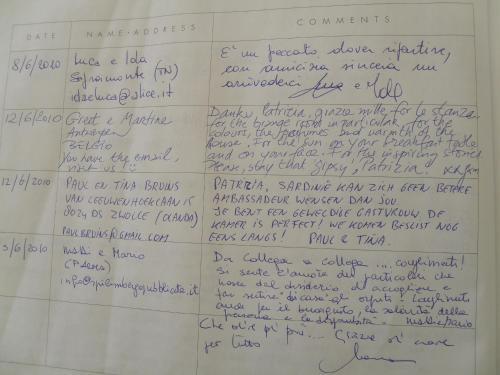 DATE NAME·ADDRESS COMMENTS
8/6/2010
Luca e Ida
Sopramonte (TN)
idaeluca@alice.it
E' un peccato dover ripartire,
con amicizia sincera un
arrivederci Luca e Ida
12/6/2010
Greet e Martine
Antwerpen
BELGIO
You have the email,
Danke, Patrizia, grazie mille, for la stanza,
for the orange room in particular, for the
colours, the perfumes and warmth of the
house. For the sun on your breakfast table
and on your face. For the inspiring stories.
Please, stay that gipsy, Patrizia!
12/6/2010
PAUL EN TINA BRUINS
VAN LEEUWENHOEKLAAN 15
ZWOLLE (OLANDA)
PAULBRUINS@GMAIL.COM
PATRIZIA, SARDINIË KAN ZICH GEEN BETERE
AMBASSADEUR WENSEN DAN JOU.
JE BENT EEN GEWELDIGE GASTVROUW. DE
KAMER IS PERFECT! WE KOMEN BESLIST NOG
EENS LANGS! PAUL & TINA.
5/6/2010
e Mario
Da collega a collega ... complimenti!
Si sente l'amore dei particolari che
nasce dal desiderio di accogliere e
far sentire a casa gli ospiti! Complimenti
anche per il buongusto, la solarità della
persona e la disponibilità.
Che dire di più... Grazie di cuore
per tutto